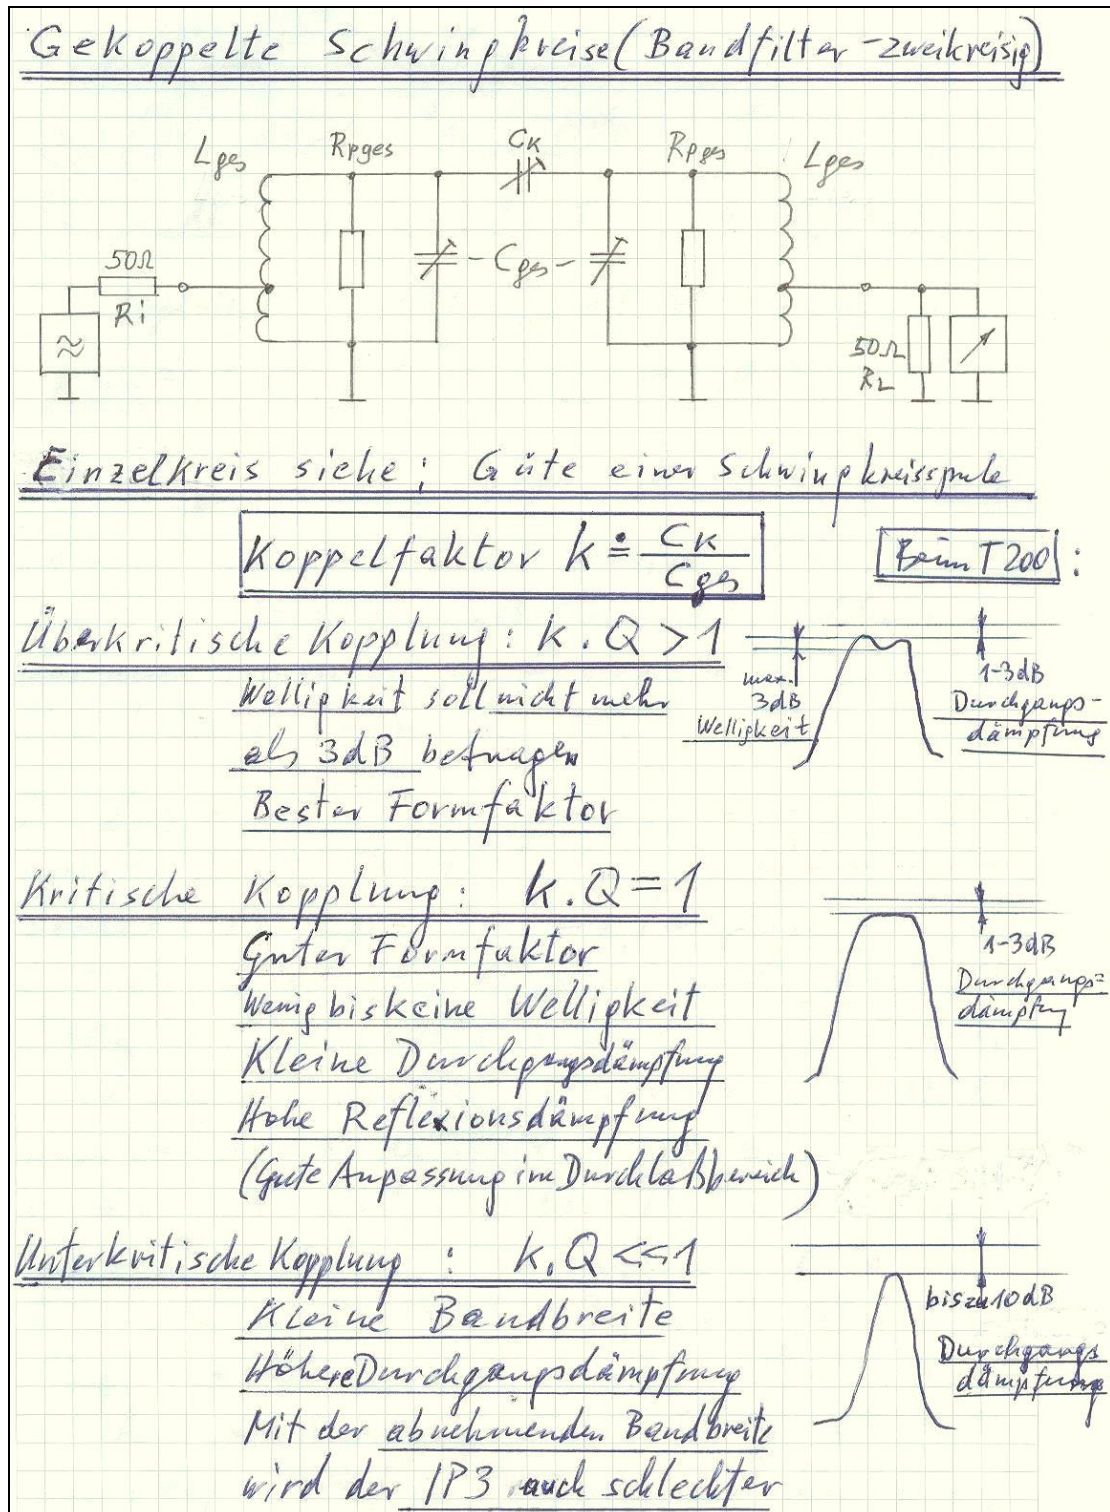 Gekoppelte Schwingkreise (Bandfilter-zweikreisig)
Lges
Rpges
CK
Rpges
Lges
50Ω
Ri
- Cges -
50Ω
RL
Einzelkreis siehe: Güte einer Schwingkreisspule
Koppelfaktor k ≐ CK / Cges
Beim T200 :
Überkritische Kopplung: k.Q > 1
Welligkeit soll nicht mehr
als 3dB betragen
Bester Formfaktor
max.
3dB
Welligkeit
1-3dB
Durchgangs-
dämpfung
Kritische Kopplung: k.Q = 1
Guter Formfaktor
Wenig bis keine Welligkeit
Kleine Durchgangsdämpfung
Hohe Reflexionsdämpfung
(Gute Anpassung im Durchlaßbereich)
1-3dB
Durchgangs=
dämpfung
Unterkritische Kopplung : k.Q <<1
Kleine Bandbreite
Höhere Durchgangsdämpfung
Mit der abnehmenden Bandbreite
wird der IP3 auch schlechter
bis zu 10dB
Durchgangs
dämpfung